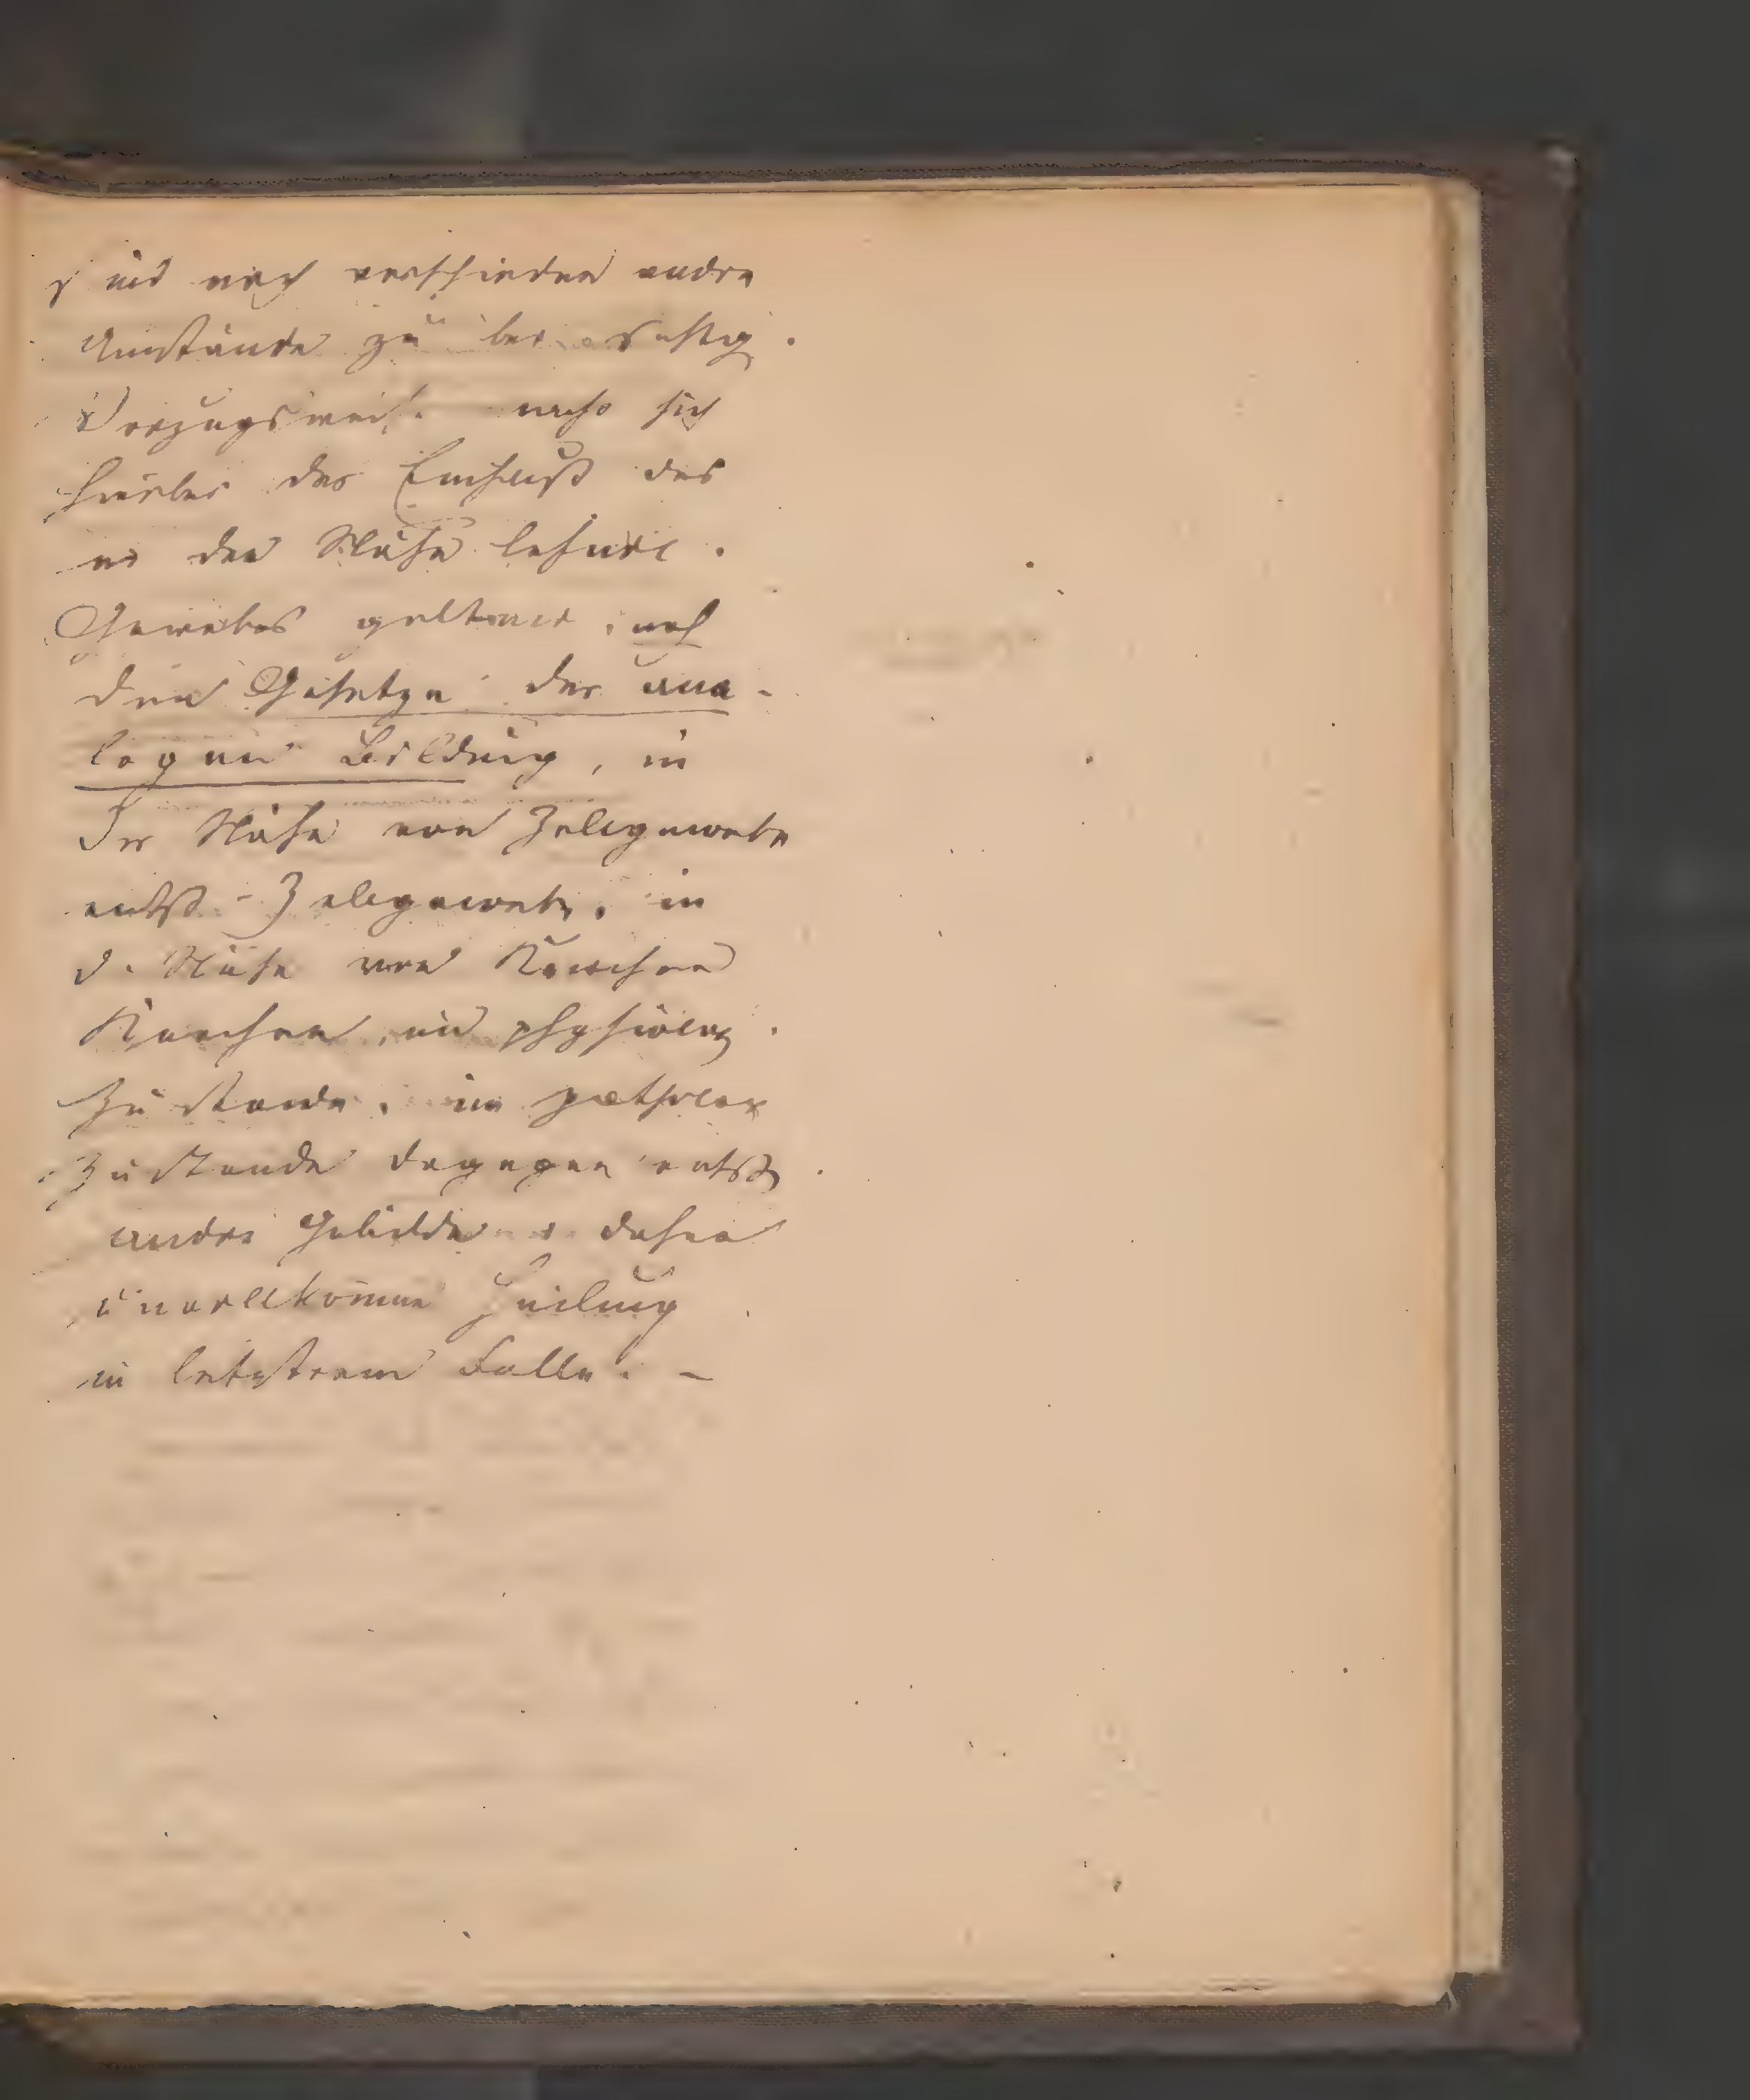 sind noch verschieden andre
Umstände zu berücksichtig.
Vorzugsweise macht sich
hierbei der Einfluß des
in der Nähe befindl.
Gewebes geltend, nach
dem Gesetze der ana-
logen Bildung, in
Der Nähe von Zellgewebe
entst. Zellgewebe, in
d. Nähe von Knochen
Knochen, im physiolog.
Zustande, im patholog
Zustande dagegen entst.
andre Gebilde daher
unvollkomme Heilung
in letzterem Falle. –